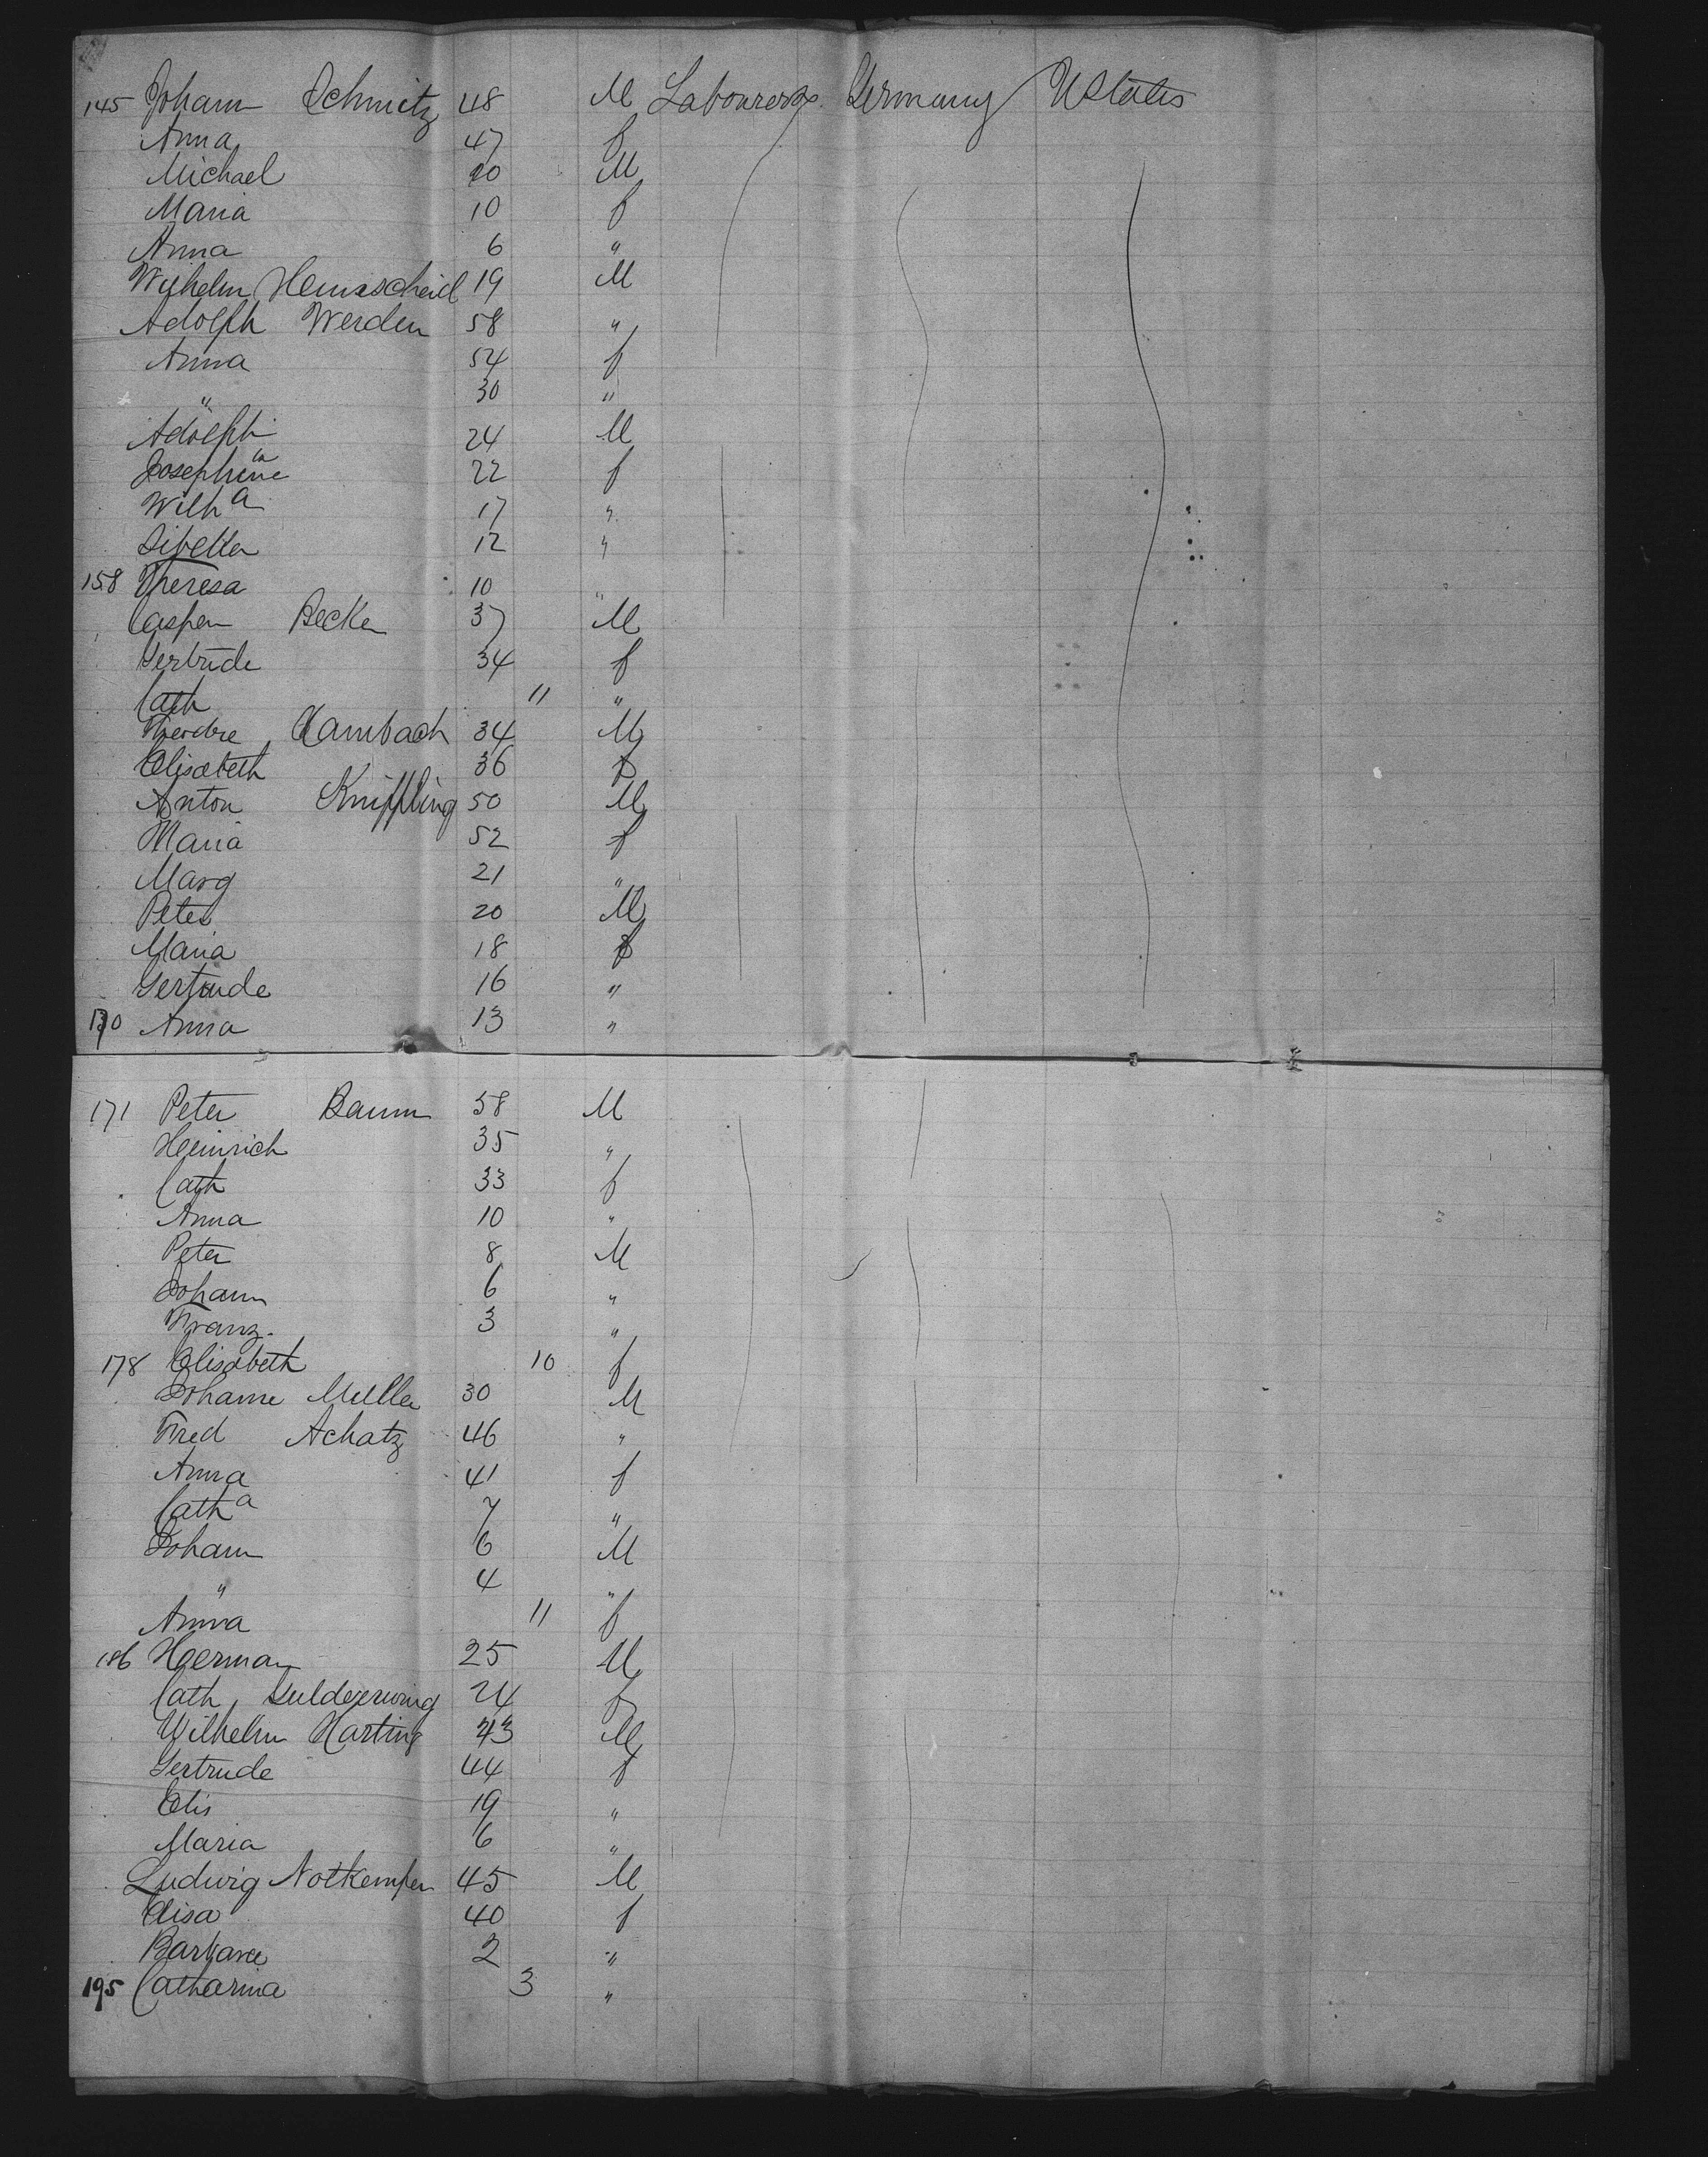 145 Johann Schmitz 48 M Labourers Germany UStates
Anna 47 f
Michael 20 M
Maria 10 f
Anna 6 "
Wilhelm 19 M
Adolph Werden 58 "
Anna 54 f
" 30 "
Adolph 24 M
Josephine 22 f
Wilh a 17 "
Sibella 12 "
158 Theresa 10 "
Casper Becker 37 M
Gertrude 34 f
Cath 11 "
Theodre Hambach 34 M
Elisabeth 36 f
Anton Knippling 50 M
Maria 52 f
Marg 21 "
Peter 20 M
Maria 18 f
Gertrude 16 "
170 Anna 13 "
171 Peter Baum 58 M
Heinrich 35 "
Cath 33 f
Anna 10 "
Peter 8 M
Johann 6 "
Franz. 3 "
178 Elisabeth 10 f
Johann Muller 30 M
Fred Achatz 46 "
Anna 41 f
Cath a 7 "
Johann 6 M
" 4 "
Anna 11 f
186 Herman 25 M
Cath 24 f
Wilhelm Harting 43 M
Gertrude 44 f
Elis 19 "
Maria 6 "
Ludwig Notkemper 45 M
Elisa 40 f
Barbara 2 "
195 Catharina 3 "